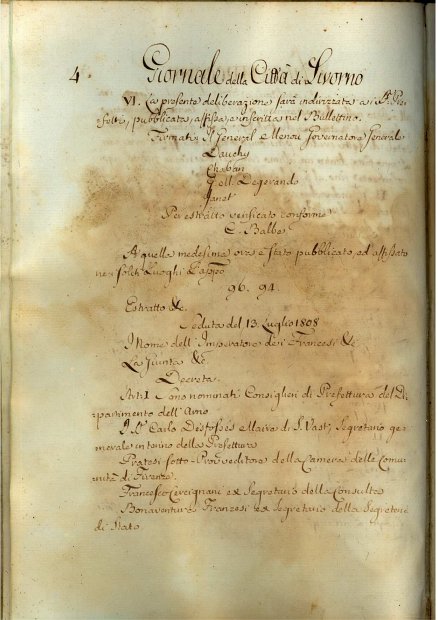 4
Giornale della Città di Livorno
VI. La presente deliberazione sarà indirizzata ai Sri. Pre-
fetti, pubblicata, affissa e inscritta nel Bullettino.
Firmati Il General e Menou Governatore Generale
Dauchy
Chaban
Degerando
Janet
Per estratto verificato conforme
C. Balbe
A quella medesima ora è stato pubblicato, ed affissato
nei soliti Luoghi l'appo.
96. 94.
Estratto &c.
Seduta del 13. Luglio 1808
I Nome dell' Imperatore dei Francesi &c
La Giunta &c.
Decreta.
Art: I Sono nominati Consiglieri di Prefettura del Di-
partimento dell' Arno
Carlo Maire di S. Vast, Segretario ge-
nerale interino della Prefettura
Pratesi Sotto-Provveditore della Camera delle Comu-
nità di Firenze.
Francesco ex Segretario della Consulta
Bonaventura Franzesi ex Segretario della Segreteria
di Stato